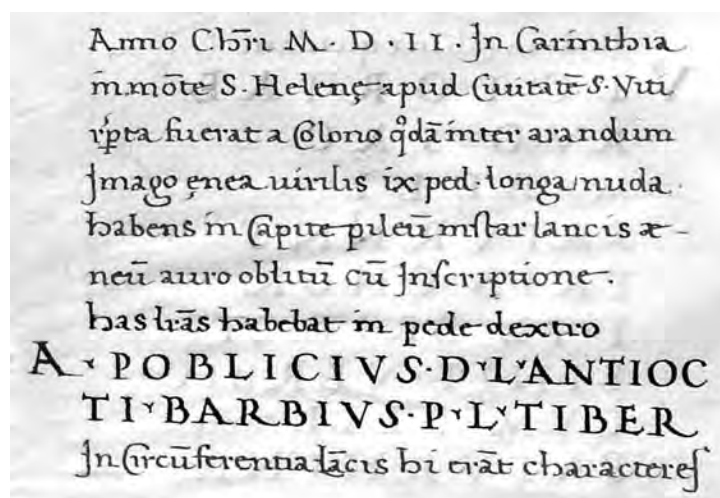 Anno Chr̄i M · D · II · Jn Carinthia
in mōte S · Helenę apud Ciuitatē S · Viti
rp̄ta fuerat a Colono qdā inter arandum
Jmago ęnea uirilis ix ped · longa nuda ·
habens in Capite pileū instar lancis æ-
neū auro oblitū cū Jnscriptione ·
has lrās habebat in pede dextro
A · POBLICIVS · D · L · ANTIOC
TI · BARBIVS · P · L · TIBER
Jn Circūferentia lācis hi erāt characteres